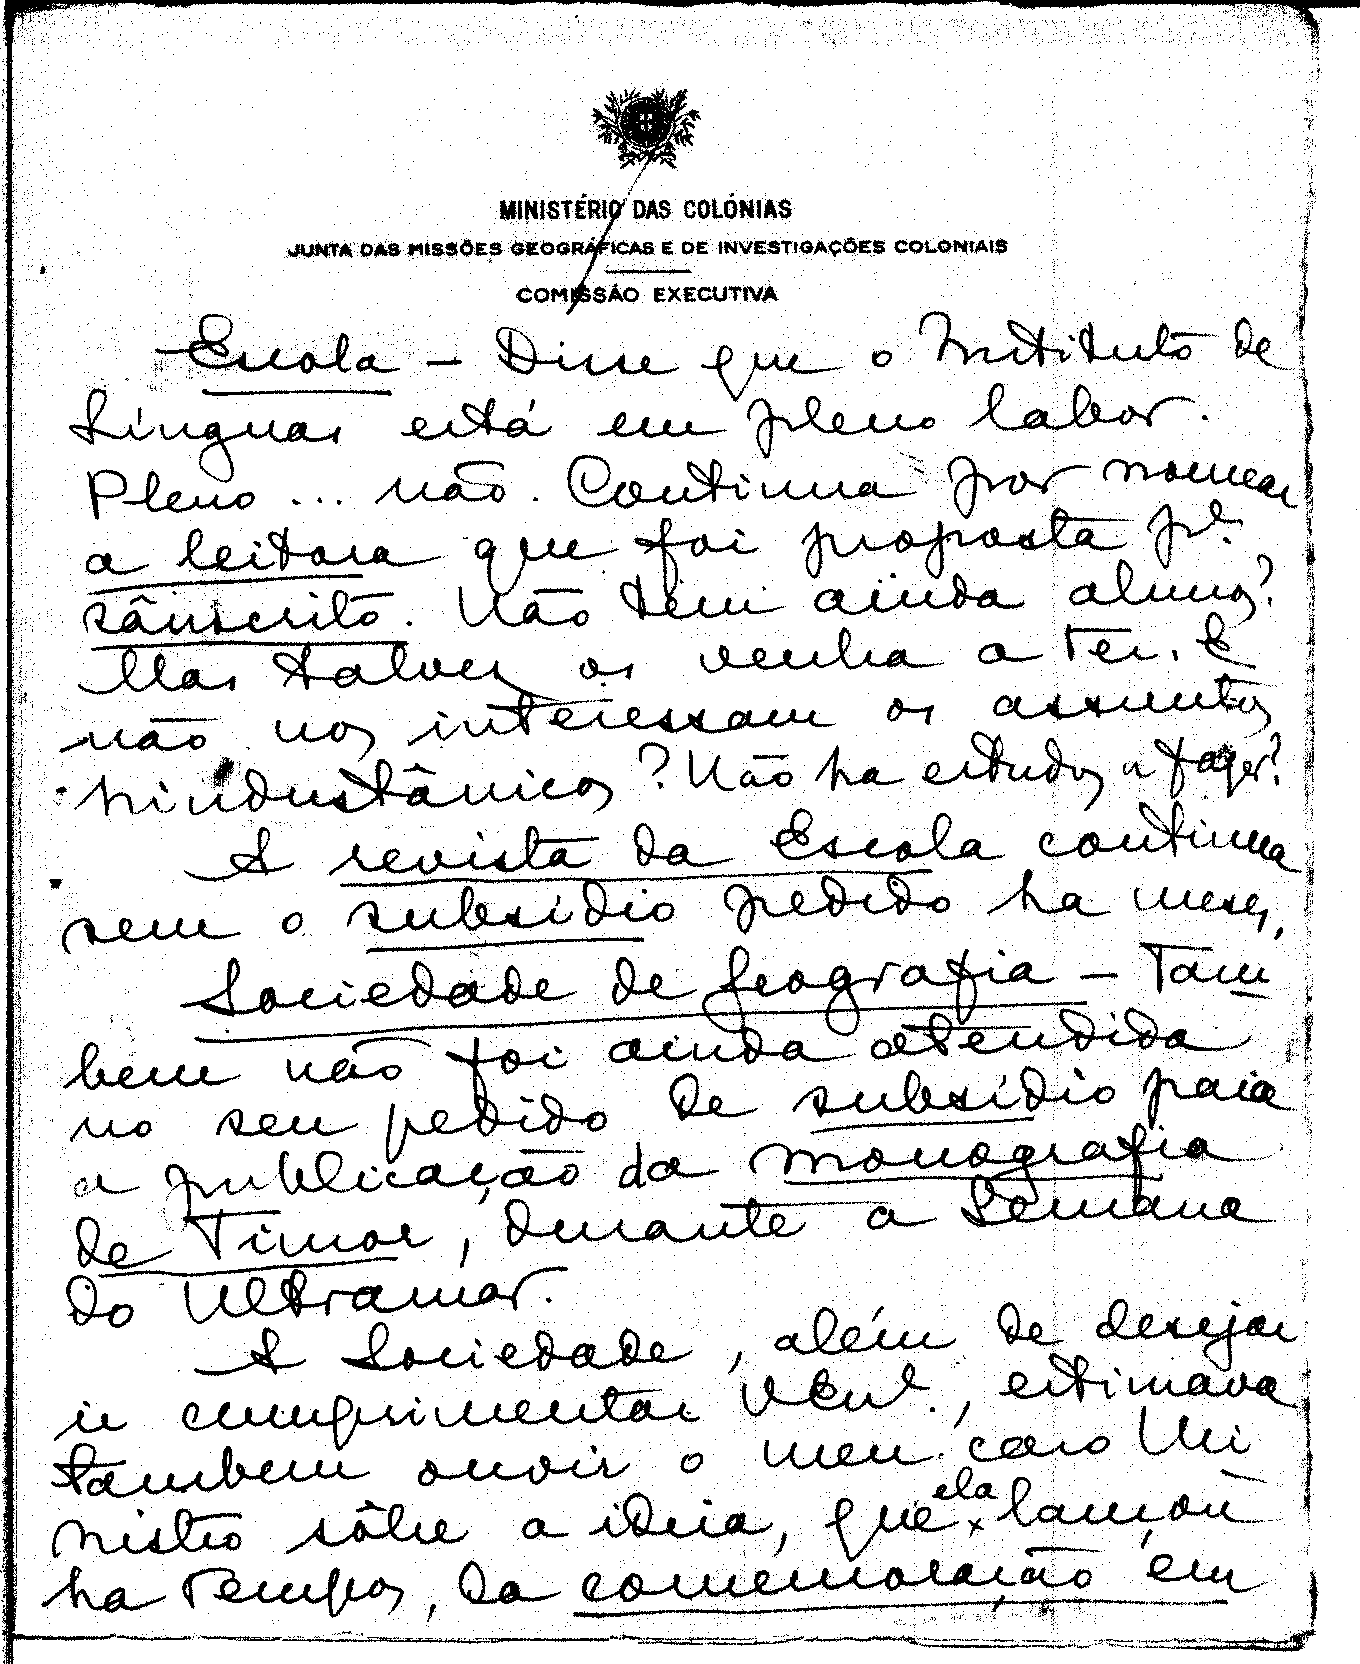 MINISTÉRIO DAS COLÓNIAS
JUNTA DAS MISSÕES GEOGRÁFICAS E DE INVESTIGAÇÕES COLONIAIS
COMISSÃO EXECUTIVA
Escola – Disse que o Instituto de
Línguas está em pleno labor.
Pleno... não. Continua por nomear
a leitora que foi proposta pª.
sânscrito. Não tem ainda alunos?
Mas talvez os venha a ter. E
não nos interessam os assuntos
hindustânicos? Não ha estudos a fazer?
A revista da Escola continua
sem o subsídio pedido ha meses,
Sociedade de Geografia – Tam
bem não foi ainda atendida
no seu pedido de subsídio para
a publicação da monografia
de Timor, durante a Semana
do Ultramar.
A Sociedade, além de desejar
ir cumprimentar VExª., estimava
tambem ouvir o meu caro Mi
nistro sôbre a ideia, que ela lançou
ha tempos, da comemoração em